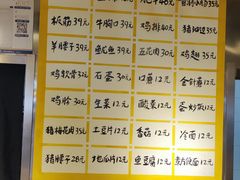 板筋39元 牛胸口39元 鸡排40元 猪五花35元
羊脖子39元 鱿鱼39元 五花肉30元 鸡翅35元
鸡软骨30元 石蛋30元 口蘑12元 金针菇12元
鸡胗30元 生菜12元 酸菜12元 蛋炒饭12元
猪梅花肉35元 土豆片12元 香菇12元 冷面12元
猪脖子28元 地瓜片12元 鱼豆腐12元 煮方便面12元